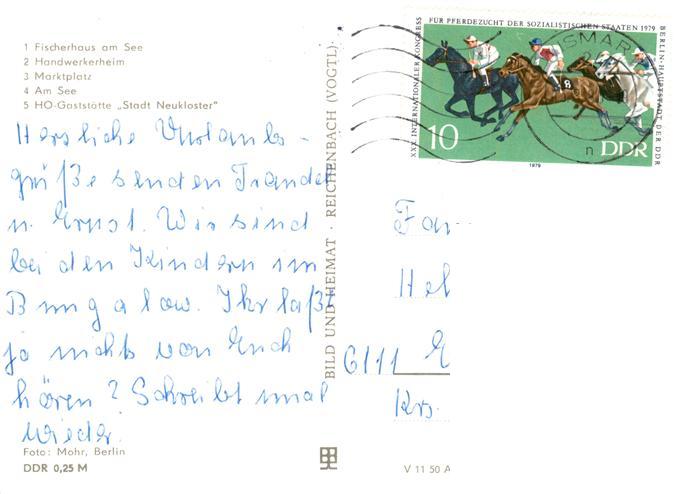 1 Fischerhaus am See
2 Handwerkerheim
3 Marktplatz
4 Am See
5 HO-Gaststätte „Stadt Neukloster"
Herzliche Urlaubs-
grüße senden
u. Ernst. Wir sind
bei den Kindern im
Bungalow. Ihr laßt
ja nichts von Euch
hören? Schreibt mal
wieder.
Foto: Mohr, Berlin
DDR 0,25 M
BILD UND HEIMAT · REICHENBACH (VOGTL)
V 11 50 A
XXX. INTERNATIONALER KONGRESS FÜR PFERDEZUCHT DER SOZIALISTISCHEN STAATEN 1979
BERLIN-HAUPTSTADT DER DDR
8
10
DDR
1979
ISMAR
Fam
Hel
6111 E
Krs.